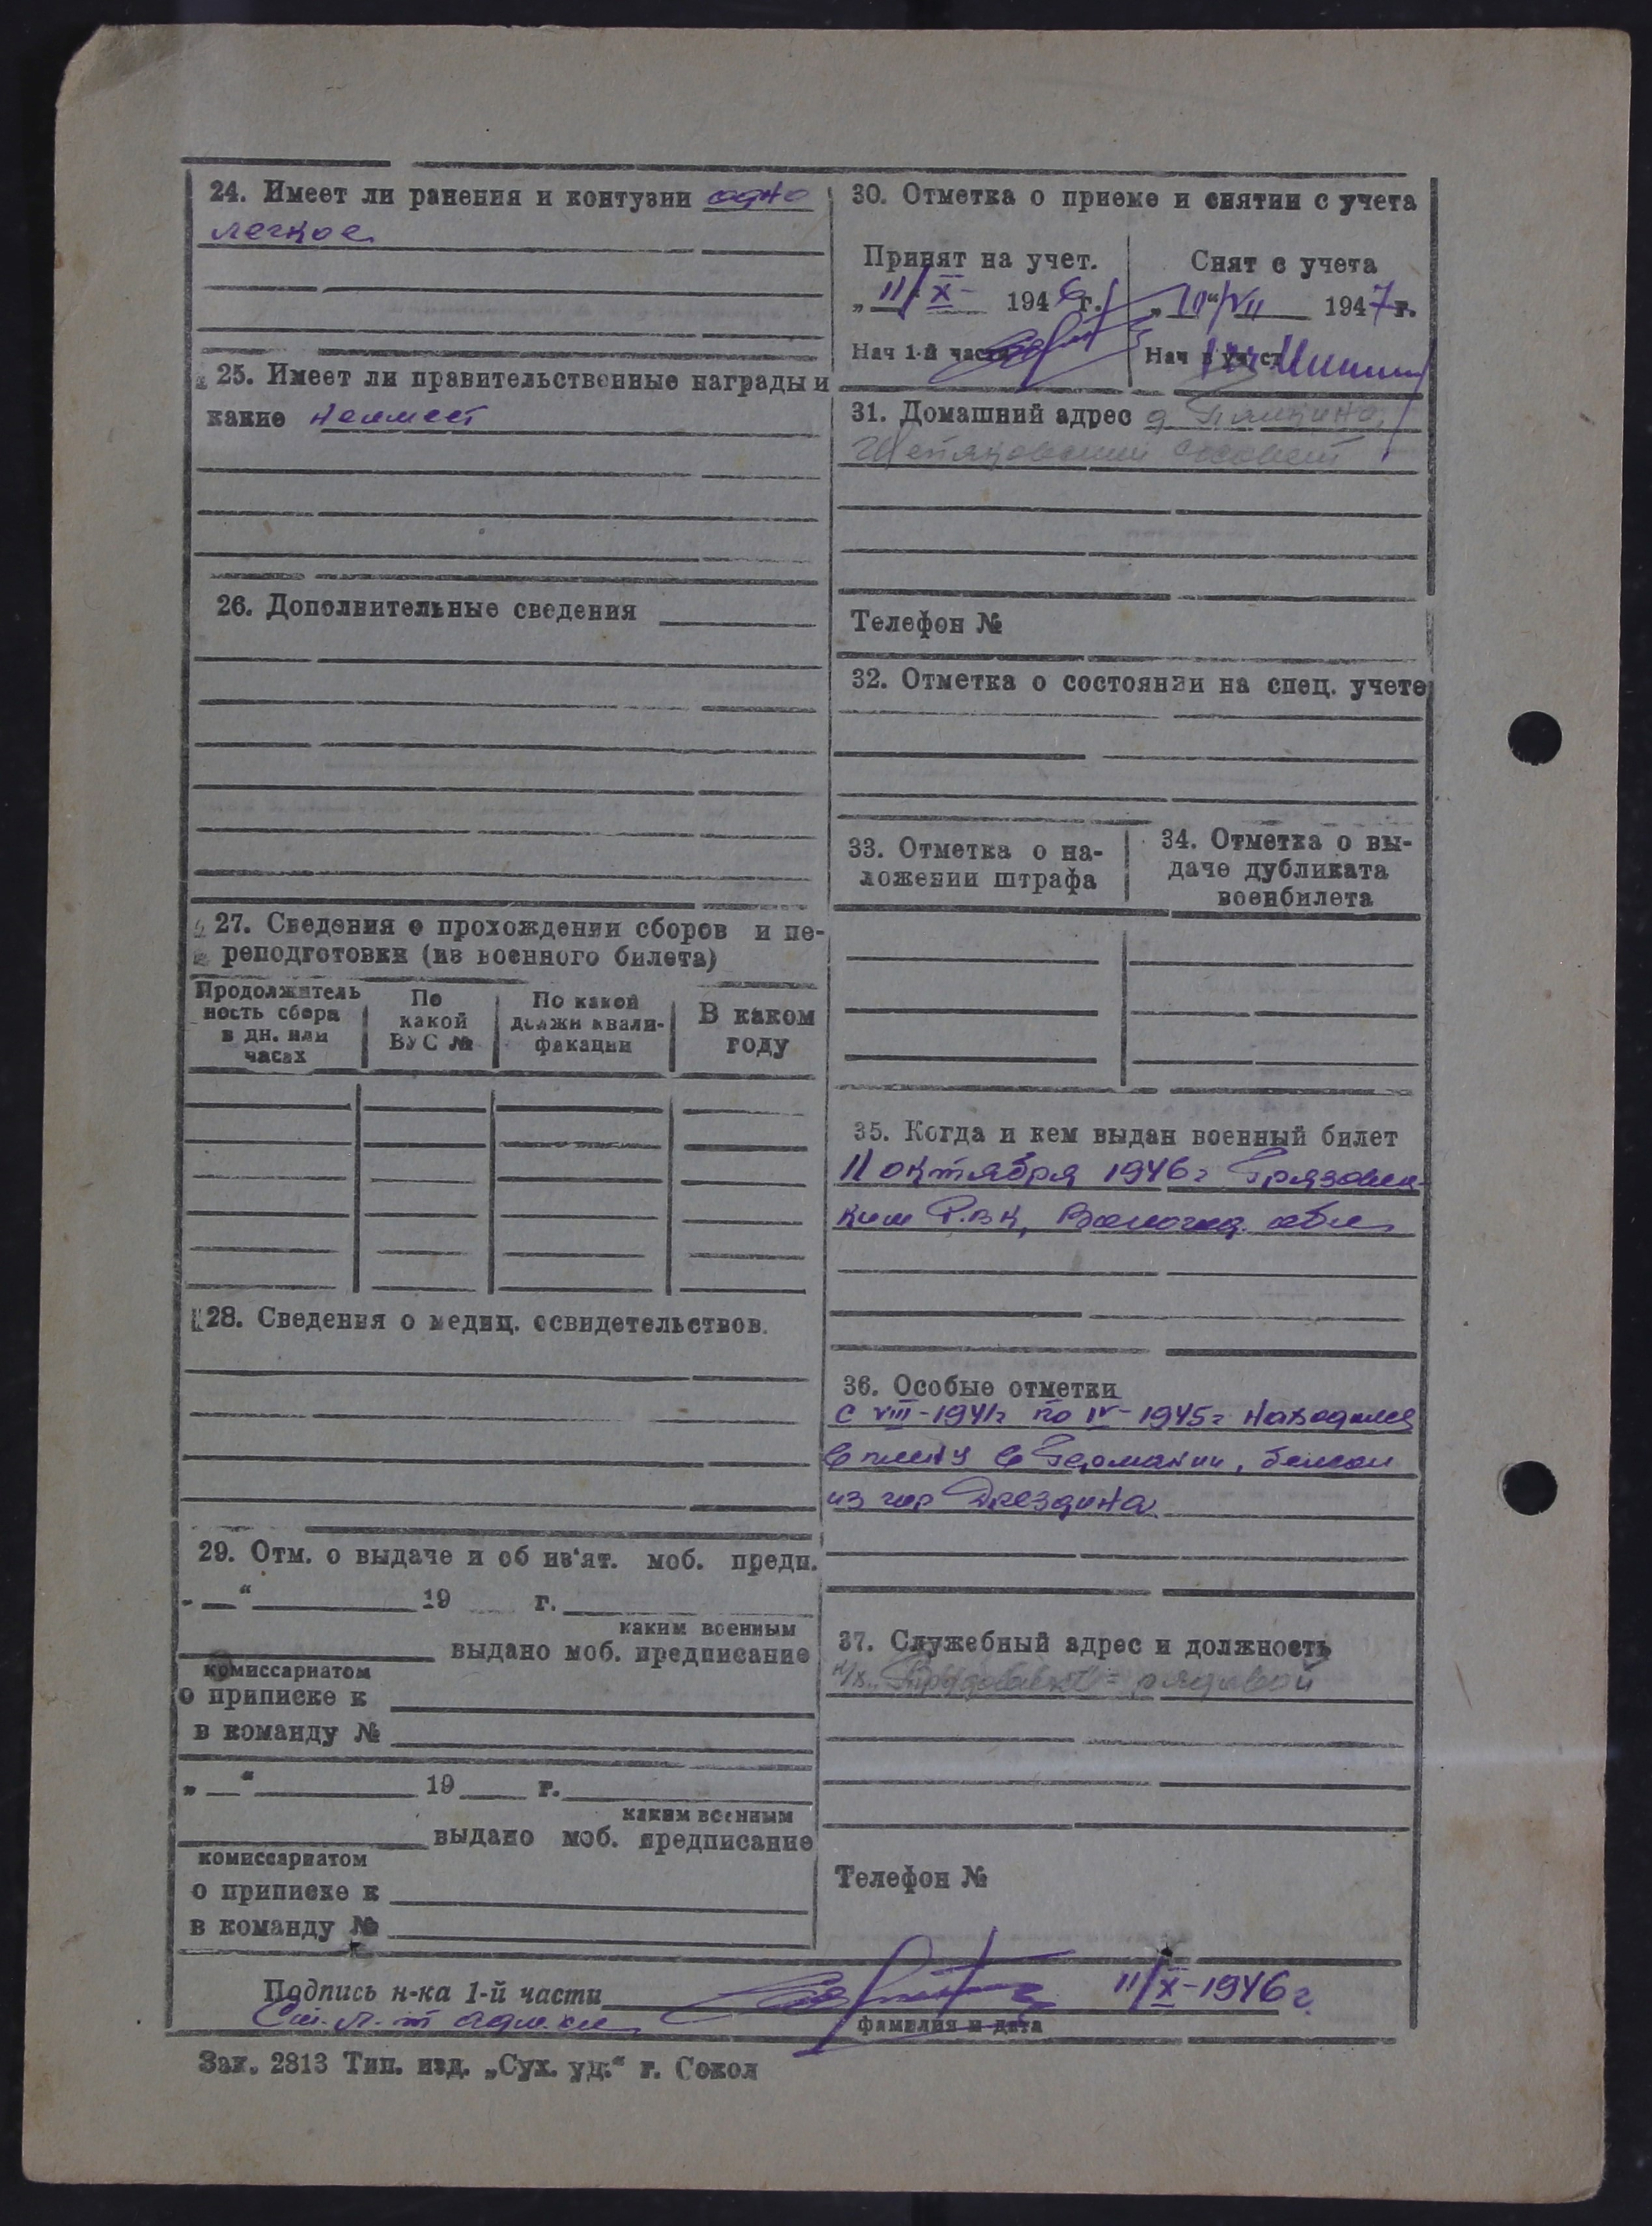 24. Имеет ли ранения и контузии одно
легкое
25. Имеет ли правительственные награды и
какие неимеет
26. Дополнительные сведения
27. Сведения о прохождении сборов и пе-
реподготовки (из военного билета)
Продолжитель
ность сбора
в дн. или
часах
По
какой
ВУС №
По какой
должн квали-
фикации
В каком
году
28. Сведения о медиц. освидетельствов.
29. Отм. о выдаче и об из'ят. моб. предп.
"__" 19 г.
каким военным
выдано моб. предписание
комиссариатом
о приписке к
в команду №
"__" 19 г.
каким военным
выдано моб. предписание
комиссариатом
о приписке к
в команду №
30. Отметка о приеме и снятии с учета
Принят на учет.
„11/X- 1946г.
Нач 1-й части
Снят с учета
/VII 1947г.
Нач
31. Домашний адрес д.
сосовет
Телефон №
32. Отметка о состоянии на спец. учете
33. Отметка о на-
ложении штрафа
34. Отметка о вы-
даче дубликата
военбилета
35. Когда и кем выдан военный билет
11 октября 1946г Грязовец-
ким Р.В.К, Вологод. обл
36. Особые отметки
С VIII-1941г по IV-1945г находился
в плену в Германии, бежал
из гор Дрездина
37. Служебный адрес и должность
к/х. рядовой
Телефон №
Подпись н-ка 1-й части 11/X-1946г.
Ст. л-т адм. сл
фамилия и дата
Зак. 2813 Тип. изд. „Сух. уд." г. Сокол